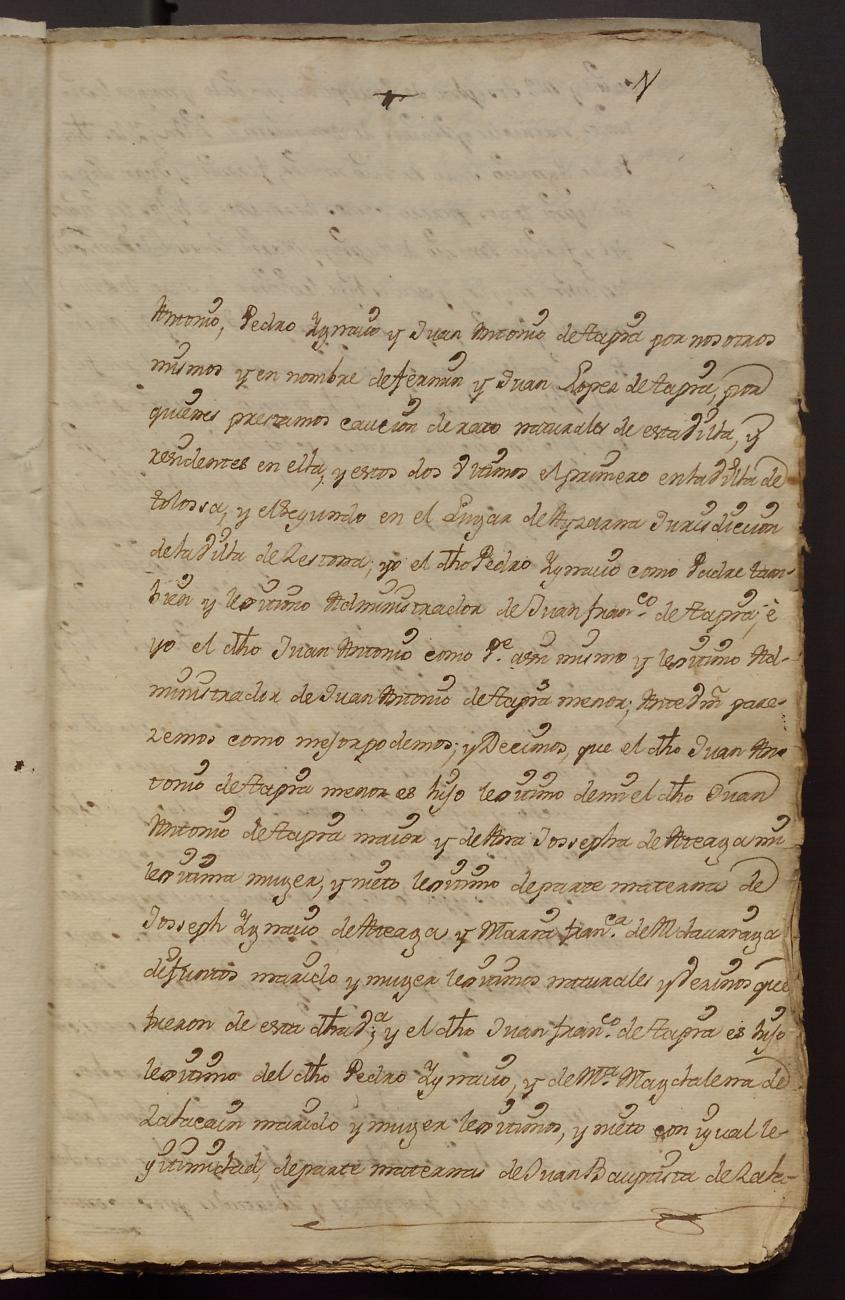 Antonio, Pedro Ygnacio y Juan Antonio de tapia por nosotros
mismos y en nombre de fermin y Juan Lopez de tapia, por
quienes prestamos caución de rato naturales de esta Villa, y
residentes en ella, y estos dos Vltimos el primero en la Villa de
tolossa, y el Segundo en el Lugar de Ayzarna Jurisdicion
de la Villa de Zestona; yo el dho Pedro Ygnacio como Padre tam-
bien y lexitimo Administrador de Juan franco. de tapia, è
yo el dho Juan Antonio como Pe. asi mismo y lexitimo Ad-
ministrador de Juan Antonio de tapia menor, Ante Vm pare-
zemos como mejor podemos; y Decimos, que el dho Juan An-
tonio de tapia menor es hijo lexitimo de mi el dho Juan
Antonio de tapia maior y de Ana Jossepha de Areaga mi
lexitima muger, y nieto lexitimo de parte materna de
Josseph Ygnacio de Areaga y Maria franca. de
defuntos marido y muger lexitimos naturales y Vezinos que
fueron de esta dha Va; y el dho Juan franco. de tapia es hijo
lexitimo del dho Pedro Ygnacio, y de Ma. Magdalena de
Zatacain marido y muger lexitimos, y nieto con ygual le-
gitimidad, de parte materna de Juan Baupista de Zata-